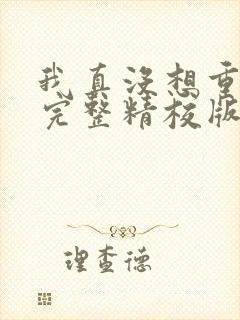 我真没想重
完整精校版
理查德